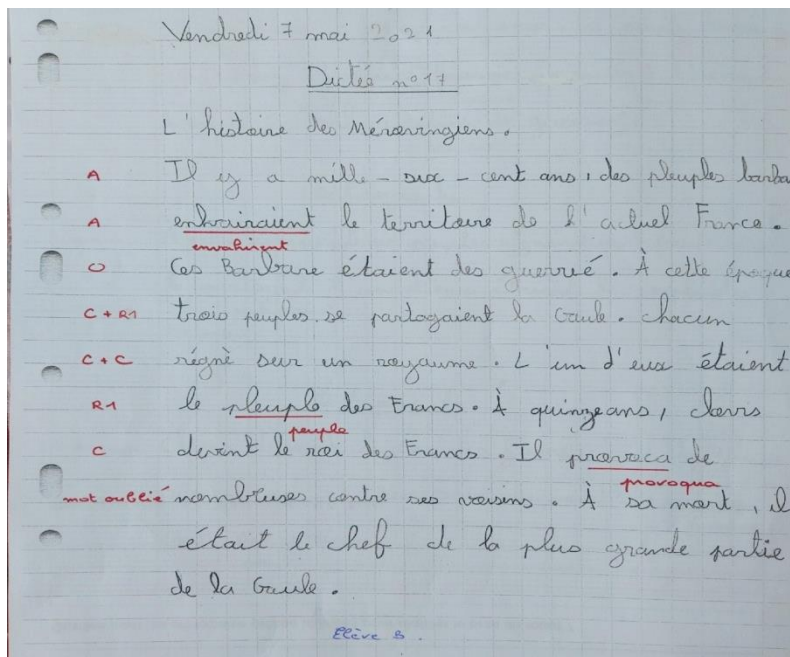 Vendredi 7 mai 2021
Dictée n°17
L'histoire des Mérovingiens.
A Il y a mille-six-cent ans, des pleuples barba
A enhrairaient le territoire de l'actuel France.
envahirent
O Ces Barbare étaient des guerrié. À cette époque
C + R1 trois peuples se partagaient la Gaule. chacun
C + C régnè sur un royaume. L'un d'eux étaient
R1 le pleuple des Francs. À quinze ans, clovis
peuple
C devint le roi des Francs. Il provoca de
provoqua
mot oublié nombruses contre ses voisins. À sa mort, il
était le chef de la plus grande partie
de la Gaule.
Elève B.